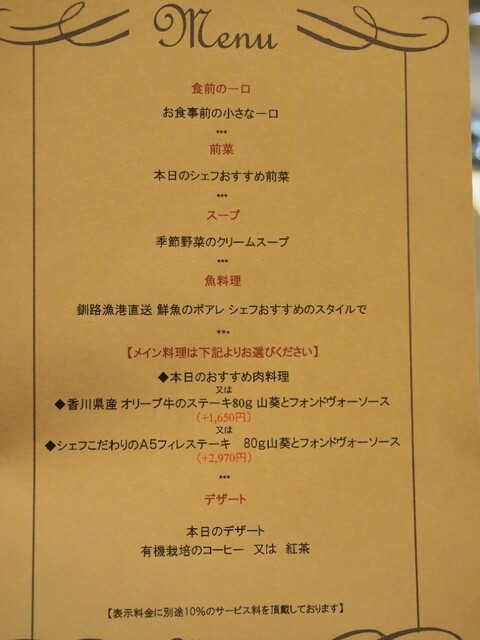 Menu
食前の一口
お食事前の小さな一口
***
前菜
本日のシェフおすすめ前菜
***
スープ
季節野菜のクリームスープ
***
魚料理
釧路漁港直送 鮮魚のポアレ シェフおすすめのスタイルで
***
【メイン料理は下記よりお選びください】
◆本日のおすすめ肉料理
又は
◆香川県産 オリーブ牛のステーキ80g 山葵とフォンドヴォーソース
(+1,650円)
又は
◆シェフこだわりのA5フィレステーキ 80g山葵とフォンドヴォーソース
(+2,970円)
***
デザート
本日のデザート
有機栽培のコーヒー 又は 紅茶
【表示料金に別途10%のサービス料を頂戴しております】